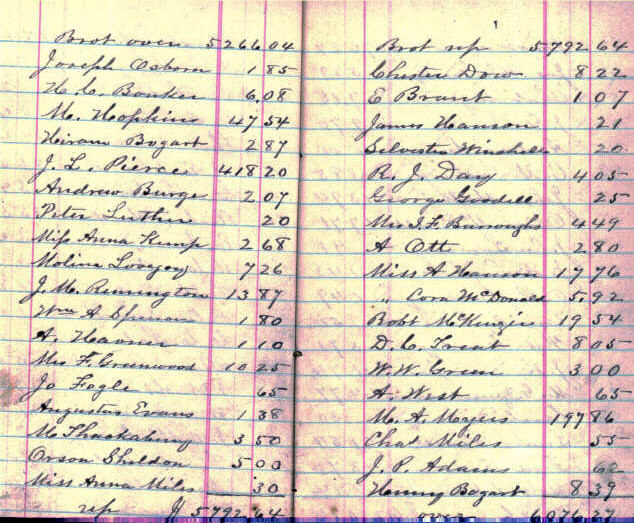 Brot over 5266 04
Joseph Osborn 1 85
H. C. Bonker 6.08
M. Hopkins 47 54
Hiram Bogart 2 87
J. L. Pierce 418 20
Andrew Burge 2 07
Peter Luther 20
Miss Anna Kemp 2 68
Moline Lovejoy 7 26
J. M. Remington 13 87
Wm A 1 80
A. Havner 1 10
Mrs F. Greenwood 10 25
Jo Fogle 65
Augustus Evans 1 38
M Thackabury 3 50
Orson Sheldon 5 00
Miss Anna Miles 30
5792 64
Brot 5792 64
Chester Dow 8 22
E Brant 1 07
James Hanson 21
Silvester 20
R. J. Day 4 05
George Goodell 25
Mrs J. F. Burroughs 4 49
A Ott 2 80
Miss A Hanson 17 76
" Cora McDonald 5.92
Robt McKenzie 19 54
D. C. Treat 8 05
W. W. Green 3 00
A. West 65
M. A. Meyers 197 86
Chas Miles 55
J. P. Adams 62
Henry Bogart 8 39
over 6076 27